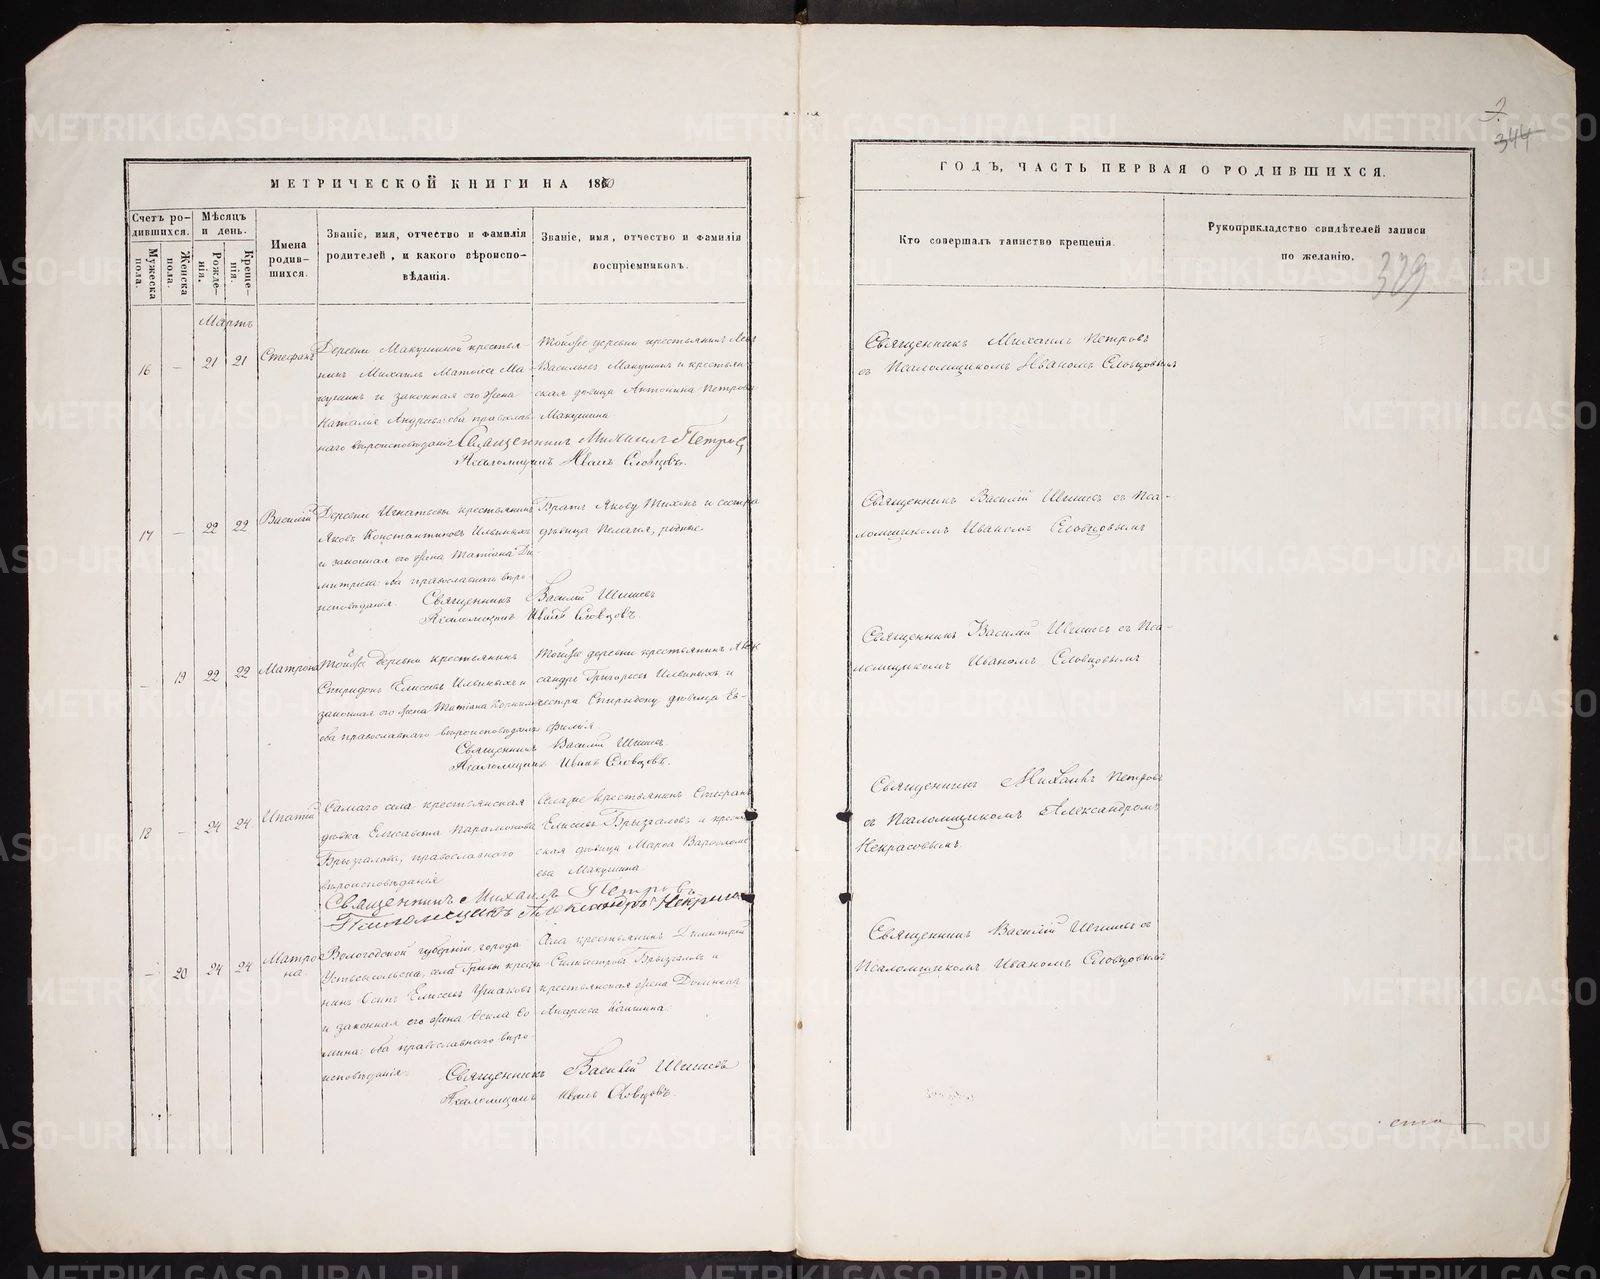 МЕТРИЧЕСКОЙ КНИГИ НА 18
Счетъ ро-
дившихся.
Мужеска
пола.
Женска
пола.
Мѣсяцъ
и день.
Рожде-
нія.
Креще-
нія.
Имена
родив-
шихся.
Званіе, имя, отчество и фамилія
родителей, и какого вѣроиспо-
вѣданія.
Званіе, имя, отчество и фамилія
воспріемниковъ.
Мартъ
16 — 21 21 Стефанъ
Деревни Макушиной крестья-
нинъ Михаилъ Ма-
кушинъ и законная его жена
Наталья Андреева оба православ-
наго вѣроисповѣданія
Тойже деревни крестьянинъ
Васильевъ Макушинъ и крестьян-
ская дѣвица Антонина Петрова
Макушина
Священникъ Михаилъ Петровъ
Псаломщикъ Иванъ Словцовъ.
17 — 22 22 Василій
Деревни Игнатьевы крестьянинъ
Яковъ Константиновъ Ильиныхъ
и законная его жена Татіана Ди-
митріева: оба православнаго вѣро-
исповѣданія.
Братъ Якову Тихонъ и сестра
дѣвица Пелагія, родные.
Священникъ Василій Шишевъ
Псаломщикъ Иванъ Словцовъ.
— 19 22 22 Матрона
Тойже деревни крестьянинъ
Спиридонъ Елисеевъ Ильиныхъ и
законная его жена Татіана
оба православнаго вѣроисповѣданія
Тойже деревни крестьянинъ Алек-
сандръ Григорьевъ Ильиныхъ и
сестра Спиридону дѣвица Ев-
фимія
Священникъ Василій Шишевъ
Псаломщикъ Иванъ Словцовъ.
18 — 24 24 Ипатій
Самаго села крестьянская
дѣвка Елисавета Парамонова
Брызгалова, православнаго
вѣроисповѣданія
Села же крестьянинъ Стефанъ
Елисеевъ Брызгаловъ и крестьян-
ская дѣвица Марѳа Варѳоломе-
ева Макушина
Священникъ Михаилъ Петровъ
Псаломщикъ Александръ Некрасовъ
— 20 24 24 Матро-
на
Вологодской губерніи, города
Устьсысольска, села
нинъ Осипъ Елисеевъ Ушаковъ
и законная его жена Ѳекла Ѳо-
мина: оба православнаго вѣро-
исповѣданія
Села крестьянинъ Димитрій
Силивестровъ Брызгаловъ и
крестьянская жена
Андреева
Священникъ Василій Шишевъ
Псаломщикъ Иванъ Словцовъ.
344
ГОДЪ, ЧАСТЬ ПЕРВАЯ О РОДИВШИХСЯ.
Кто совершалъ таинство крещенія.
Рукоприкладство свидѣтелей записи
по желанію.
339
Священникъ Михаилъ Петровъ
съ Псаломщикомъ Иваномъ Словцовымъ
Священникъ Василій Шишевъ съ Пса-
ломщикомъ Иваномъ Словцовымъ
Священникъ Василій Шишевъ съ Пса-
ломщикомъ Иваномъ Словцовымъ
Священникъ Михаилъ Петровъ
съ Псаломщикомъ Александромъ
Некрасовымъ.
Священникъ Василій Шишевъ съ
Псаломщикомъ Иваномъ Словцовымъ
ста
METRIKI.GASO-URAL.RU